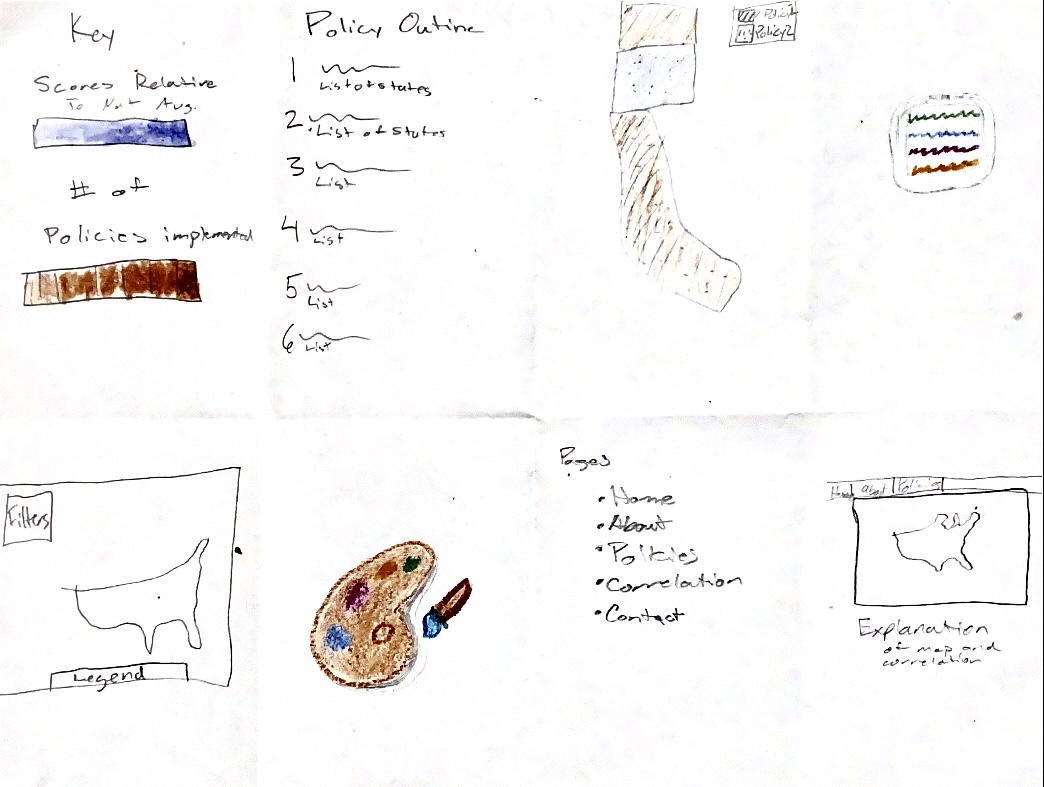 Key
Scores Relative
To Nat Avg.
# of
Policies implemented
Policy Outline
1
List of states
2
List of States
3
List
4
List
5
List
6
List
Policy 1
Policy 2
Filters
Legend
Pages
• Home
• About
• Policies
• Correlation
• Contact
Home About Policies
Explanation
of map and
correlation